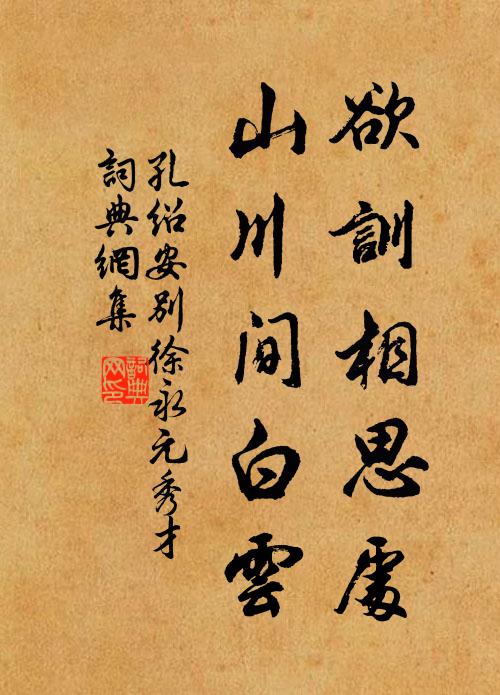 欲訓相思處
山川間白雲
孔紹安別徐永元秀才
詞典網集
詞典
网印